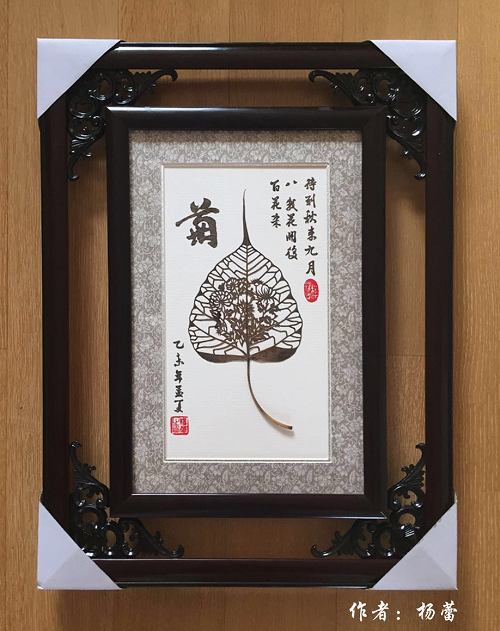 待到秋来九月
八我花開後
百花杀
菊
乙未年孟夏
作者：杨蕾